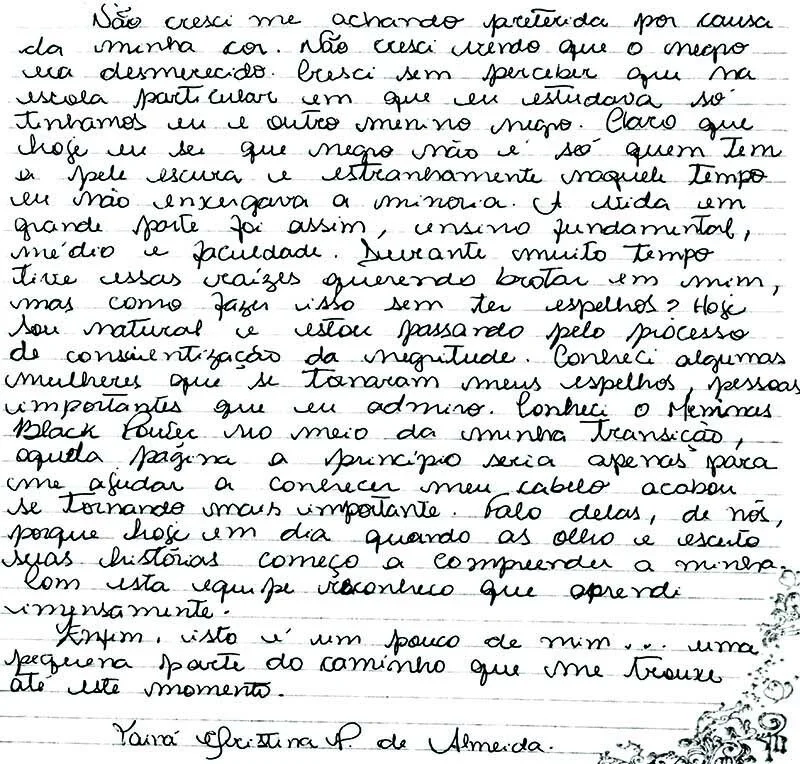 Não cresci me achando preterida por causa
da minha cor. Não cresci vendo que o negro
era desmerecido. Cresci sem perceber que na
escola particular em que eu estudava só
tinhamos eu e outro menino negro. Claro que
hoje eu sei que negro não é só quem tem
a pele escura e estranhamente naquele tempo
eu não enxergava a minoria. A vida em
grande parte foi assim, ensino fundamental,
médio e faculdade. Durante muito tempo
tive essas raízes querendo brotar em mim,
mas como fazer isso sem ter espelhos? Hoje
sou natural e estou passando pelo processo
de conscientização da negritude. Conheci algumas
mulheres que se tonaram meus espelhos, pessoas
importantes que eu admiro. Conheci o Meninas
Black Power no meio da minha transição,
aquela página a princípio seria apenas para
me ajudar a conhecer meu cabelo acabou
se tornando mais importante. Falo delas, de nós,
porque hoje em dia quando as olho e escuto
suas histórias começo a compreender a minha.
Com esta equipe reconheco que aprendi
imensamente.
Enfim, isto é um pouco de mim... uma
pequena parte do caminho que me trouxe
até este momento.
Tainá Cristina P. de Almeida.